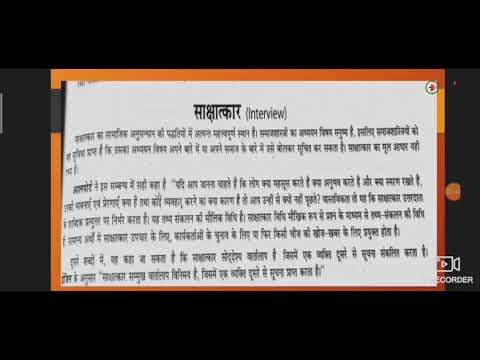 साक्षात्कार (Interview)
साक्षात्कार का सामाजिक अनुसन्धान की पद्धतियों में अत्यन्त महत्त्वपूर्ण स्थान है। समाजशास्त्री का अध्ययन विषय मनुष्य है, इसलिए समाजशास्त्रियों को
यह सुविधा प्राप्त है कि उसका अध्ययन विषय अपने बारे में या अपने समाज के बारे में उसे बोलकर सूचित कर सकता है। साक्षात्कार का मूल आधार यही
तथ्य है।
आलपोर्ट ने इस सम्बन्ध में सही कहा है "यदि आप जानना चाहते हैं कि लोग क्या महसूस करते हैं क्या अनुभव करते हैं और क्या स्मरण रखते हैं,
उनकी भावनाएँ एवं प्रेरणाएँ क्या हैं तथा कोई व्यवहार करने का क्या कारण है तो आप उन्हीं से क्यों नहीं पूछते? वास्तविकता तो यह है कि साक्षात्कार उत्तरदाता
के शाब्दिक प्रत्युत्तर पर निर्भर करता है। यह तथ्य संकलन की मौलिक विधि है। साक्षात्कार विधि मौखिक रूप से प्रश्न के माध्यम से तथ्य-संकलन की विधि
है सामान्य अर्थों में साक्षात्कार उपचार के लिए, कार्यकर्ताओं के चुनाव के लिए या फिर किसी चीज की खोज-खबर के लिए प्रयुक्त होता है।
दूसरे शब्दों में, यह कहा जा सकता है कि साक्षात्कार सोद्देश्य वार्तालाप है जिसमें एक व्यक्ति दूसरे से सूचना संकलित करता है।
के अनुसार "साक्षात्कार सम्मुख वार्तालाप विनिमय है, जिसमें एक व्यक्ति दूसरे से सूचना प्राप्त करता है।"
RECORDER